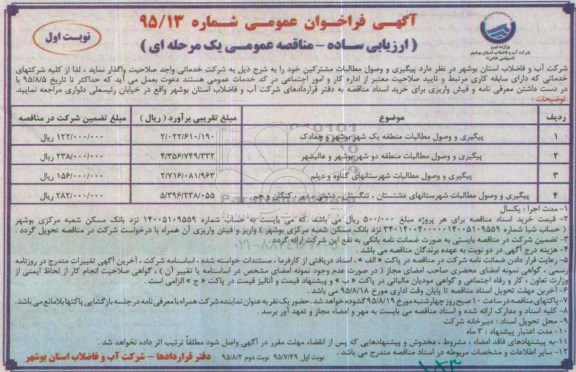 آگهی فراخوان عمومی شماره ۹۵/۱۳
(ارزیابی ساده - مناقصه عمومی یک مرحله ای)
نوبت اول
وزارت نیرو
شرکت آب و فاضلاب استان بوشهر
(سهامی خاص)
شرکت آب و فاضلاب استان بوشهر در نظر دارد پیگیری و وصول مطالبات مشترکین خود را به شرح ذیل به شرکت خدماتی واجد صلاحیت واگذار نماید ، لذا از کلیه شرکتهای
خدماتی که دارای سابقه کاری مرتبط و تایید صلاحیت معتبر از اداره کار و امور اجتماعی در کد خدمات عمومی هستند دعوت بعمل می آید که حداکثر تا تاریخ ۹۵/۸/۵ با
در دست داشتن معرفی نامه و فیش واریزی برای خرید اسناد مناقصه به دفتر قراردادهای شرکت آب و فاضلاب استان بوشهر واقع در خیابان رئیسعلی دلواری مراجعه نمایید.
توضیحات :
ردیف موضوع مبلغ تقریبی برآورد ( ریال ) مبلغ تضمین شرکت در مناقصه
۱ پیگیری و وصول مطالبات منطقه یک شهر بوشهر و چغادک ۲/۰۲۲/۶۱۰/۱۹۰ ۱۲۲/۰۰۰/۰۰۰ ریال
۲ پیگیری و وصول مطالبات منطقه دو شهر بوشهر و عالیشهر ۴/۳۵۶/۷۴۹/۳۳۲ ۲۳۸/۰۰۰/۰۰۰ ریال
۳ پیگیری و وصول مطالبات شهرستانهای گناوه و دیلم ۲/۷۱۶/۰۸۱/۹۶۲ ۱۵۶/۰۰۰/۰۰۰ ریال
۴ پیگیری و وصول مطالبات شهرستانهای دشتستان ، تنگستان ، دشتی ، دیر ، کنگان و جم ۵/۳۹۶/۲۳۸/۰۵۵ ۲۸۲/۰۰۰/۰۰۰ ریال
۱- مدت اجرا : یکسال
۲- قیمت خرید اسناد مناقصه برای هر پروژه مبلغ ۵۰۰/۰۰۰ ریال می باشد که می بایست به حساب شماره ۱۴۰۰۵۱۰۹۵۵۹ نزد بانک مسکن شعبه مرکزی بوشهر
( حساب شبا شماره نزد بانک مسکن شعبه مرکزی بوشهر ) واریز و فیش واریزی آن همراه با درخواست شرکت در مناقصه تحویل گردد .
۳- تضمین شرکت در مناقصه بایستی به صورت ضمانت نامه بانکی به نفع این شرکت ارائه گردد .
۴- هزینه درج آگهی در دو نوبت به عهده برندگان مناقصه می باشد.
۵- رعایت قرار دادن ضمانت نامه شرکت در مناقصه در پاکت « الف » ، اسناد دریافتی از کارفرما ، مستندات خواسته شده ، اساسنامه شرکت ، آخرین آگهی تغییرات مندرج در روزنامه
رسمی ، گواهی نمونه امضای محضری صاحب امضای مجاز ( در صورت عدم وجود نمونه امضای مشخص در اساسنامه یا تغییر آن ) ، گواهی صلاحیت انجام کار از لحاظ ایمنی از
وزارت تعاون ، کار و رفاه اجتماعی و گواهی مودیان مالیاتی در پاکت « ب » و پیشنهاد قیمت و آنالیز قیمت در پاکت « ج » الزامی است .
۶- آخرین مهلت تحویل اسناد مناقصه تا پایان وقت اداری مورخ ۹۵/۸/۱۸ می باشد .
۷- پاکتهای مناقصه در ساعت ۱۰ صبح روز چهارشنبه مورخ ۹۵/۸/۱۹ گشوده خواهد شد. حضور یک نفر به عنوان نماینده شرکت همراه با معرفی نامه در جلسه بازگشایی پاکتها بلامانع می باشد.
۸- کلیه اسناد و مدارک ارائه شده و اسناد مناقصه می بایست به مهر و امضاء مجاز و تعهد آور برسد .
۹- محل تحویل اسناد : دبیرخانه شرکت
۱۰- مدت اعتبار پیشنهاد : ۳ ماه
۱۱- به پیشنهادهای فاقد امضاء ، مشروط ، مخدوش و پیشنهادهایی که پس از انقضاء مهلت مقرر در آگهی واصل شود مطلقاً ترتیب اثر داده نخواهد شد .
۱۲- سایر اطلاعات و مشخصات مربوطه در اسناد مناقصه مندرج می باشد .
نوبت اول ۹۵/۷/۲۹ نوبت دوم ۹۵/۸/۲
دفتر قراردادها - شرکت آب و فاضلاب استان بوشهر